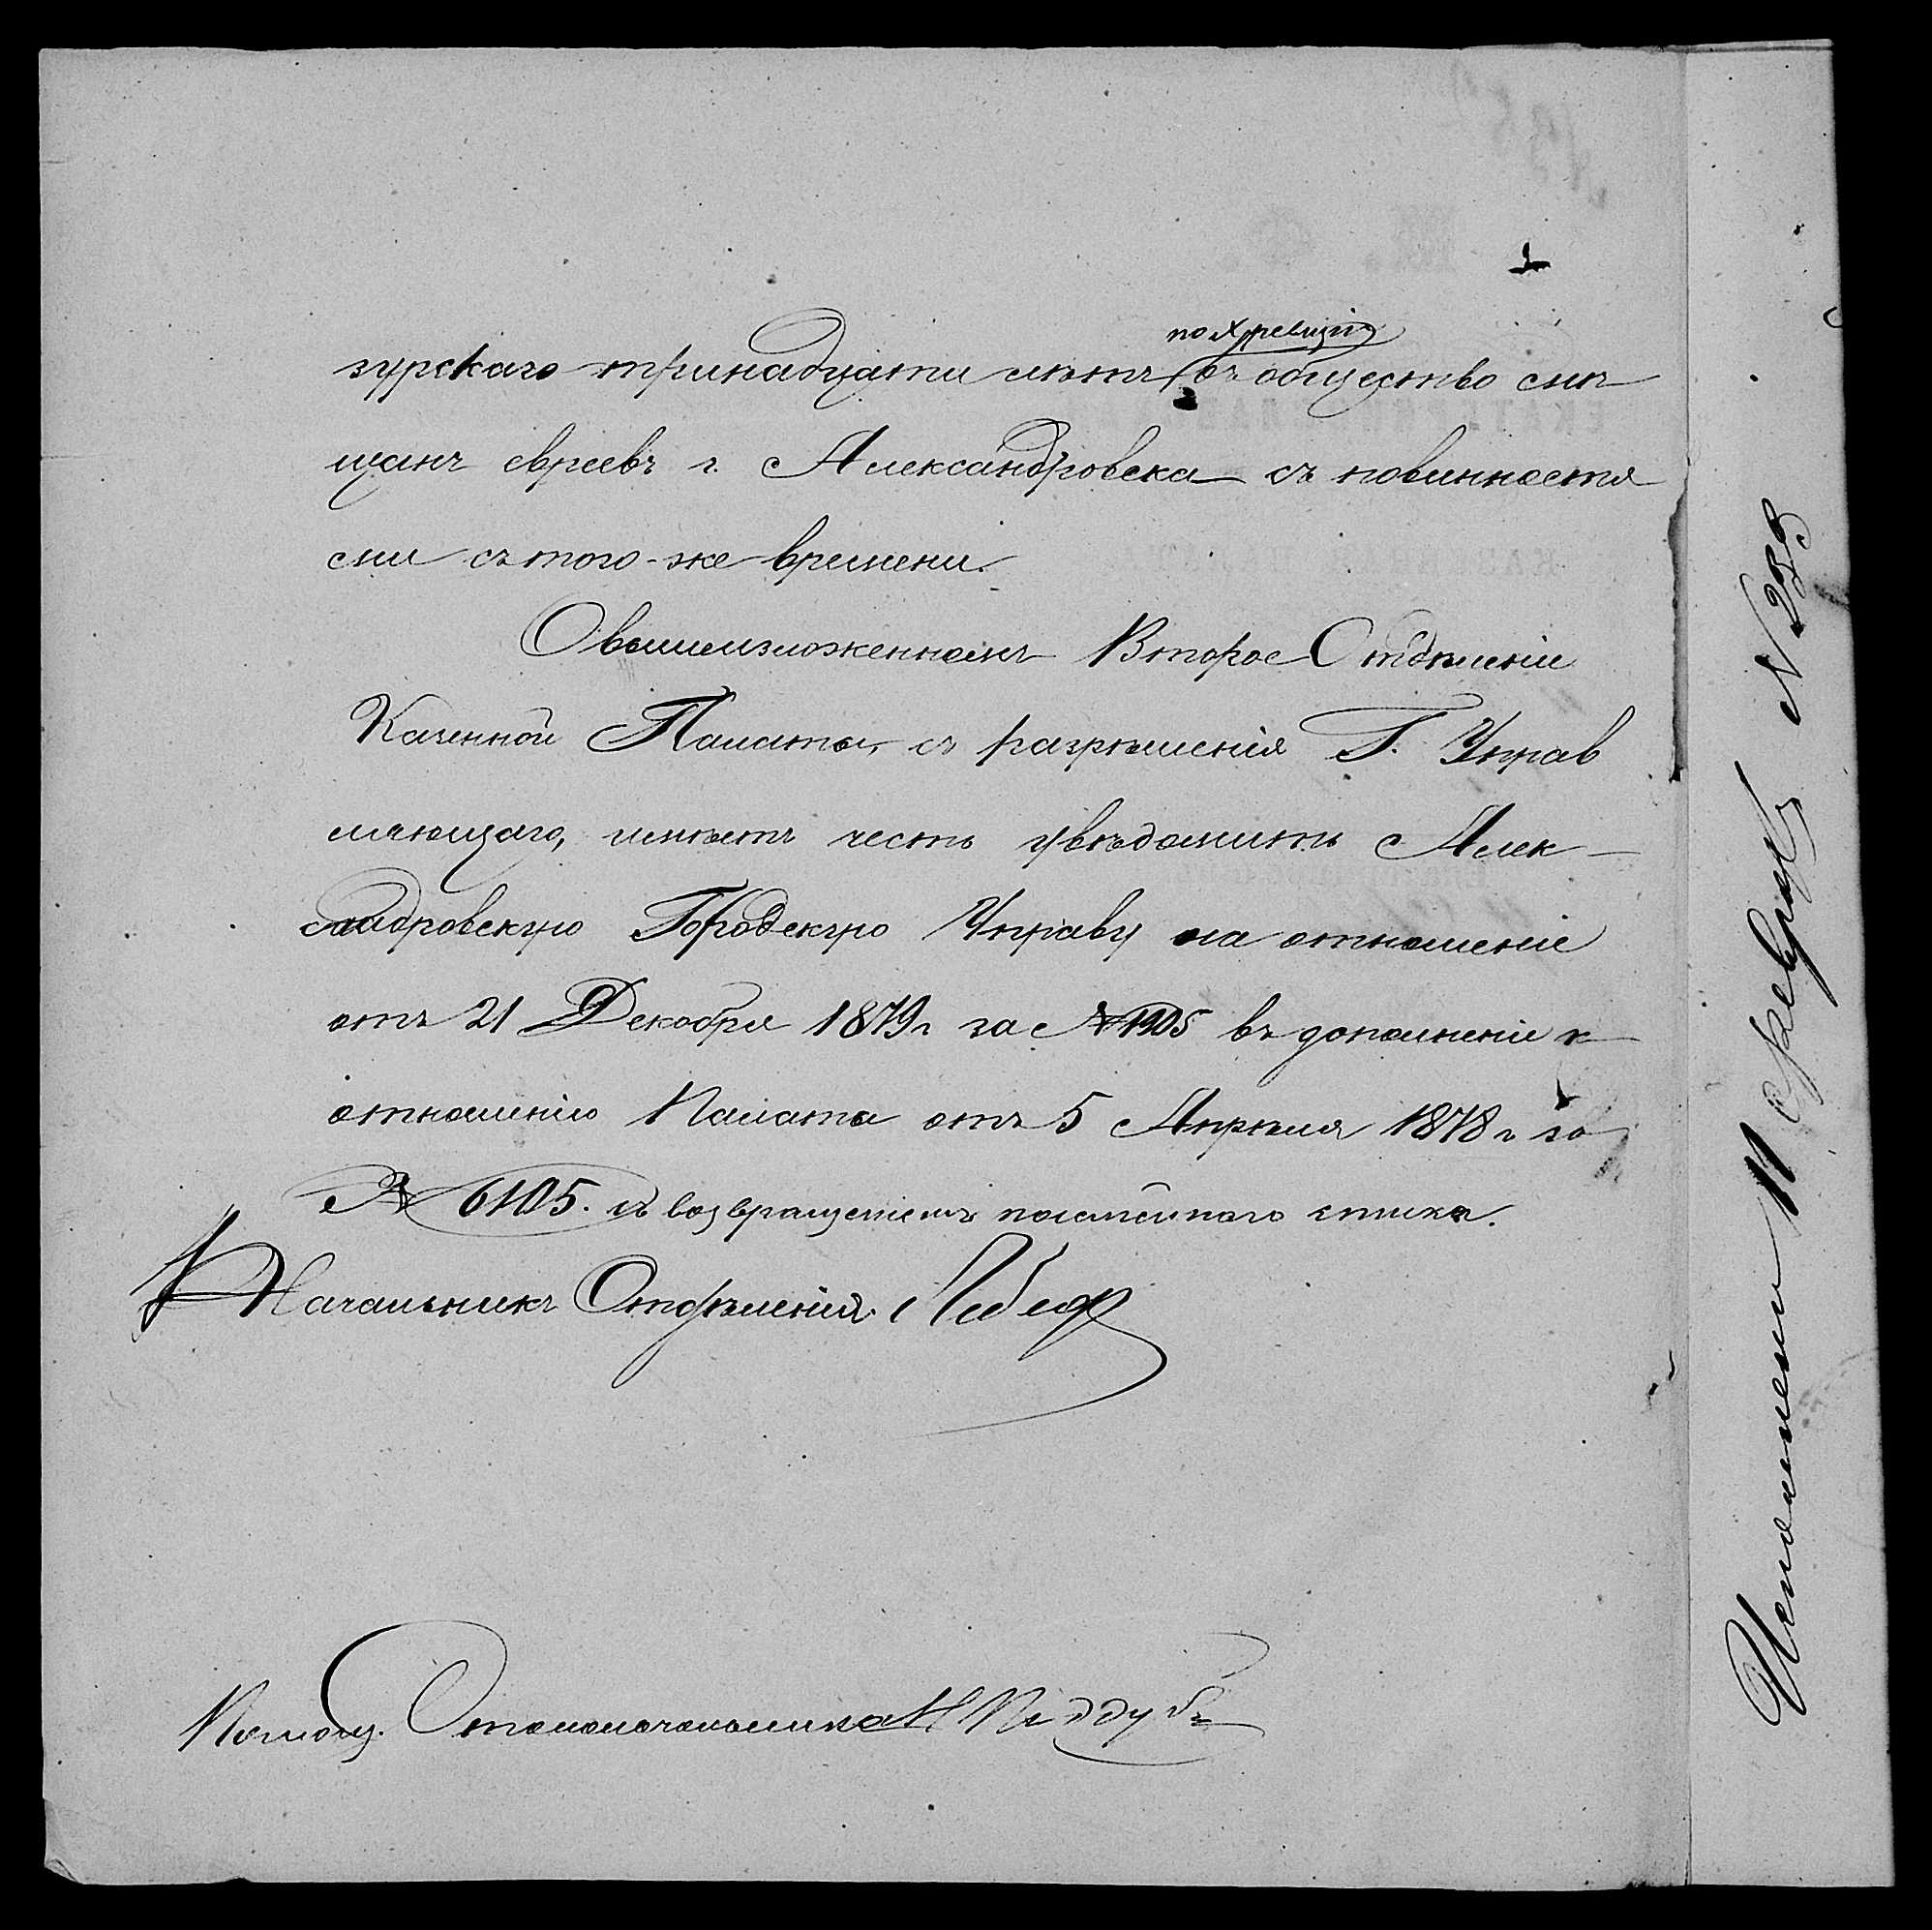 по X ревизіи
зурскаго тринадцати лѣтъ въ общество мѣ
щанъ евреевъ г. Александровска съ повинностя
ми съ того-же времени.
О вышеизложенномъ Второе Отдѣленіе
Казенной Палаты, съ разрѣшенія Г. Управ
ляющаго, имѣетъ честь увѣдомить Алек-
сандровскую Городскую Управу на отношеніе
отъ 21 Декабря 1879 г. за № 1305 въ дополненіе к
отношенію Палаты отъ 5 Апрѣля 1878 г. за
№ 6105. съ возвращеніемъ посемейнаго списка.
Начальникъ Отдѣленія
Помощ. Столоначальника Н Поддуб
Исполнено 11 Февраля № 235